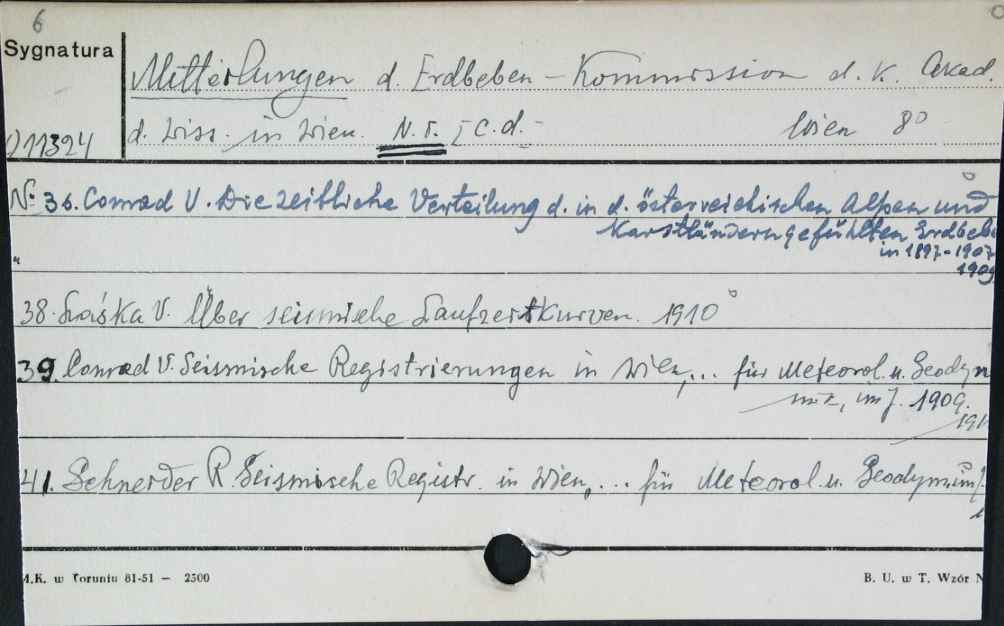 6
Sygnatura
Mitteilungen d. Erdbeben-Kommission d. K. Akad.
d. Wiss. in Wien. N.F. - c.d. - Wien 8°
11324
Nr 36. Conrad V. Die zeitliche Verteilung d. in d. österreichischen Alpen und
Karstländern gefühlten Erdbebe
in 1897-1907.
1909
38. Láska V. Über seismische Laufzeitkurven. 1910
39. Conrad V. Seismische Registrierungen in Wien,... für Meteorol. u. Geodyn
im J. 1909.
191
41. Schneider R. Seismische Registr. in Wien,... für Meteorol. u. Geodynam.
M.K. w Toruniu 81-51 — 2500
B. U. w T. Wzór N